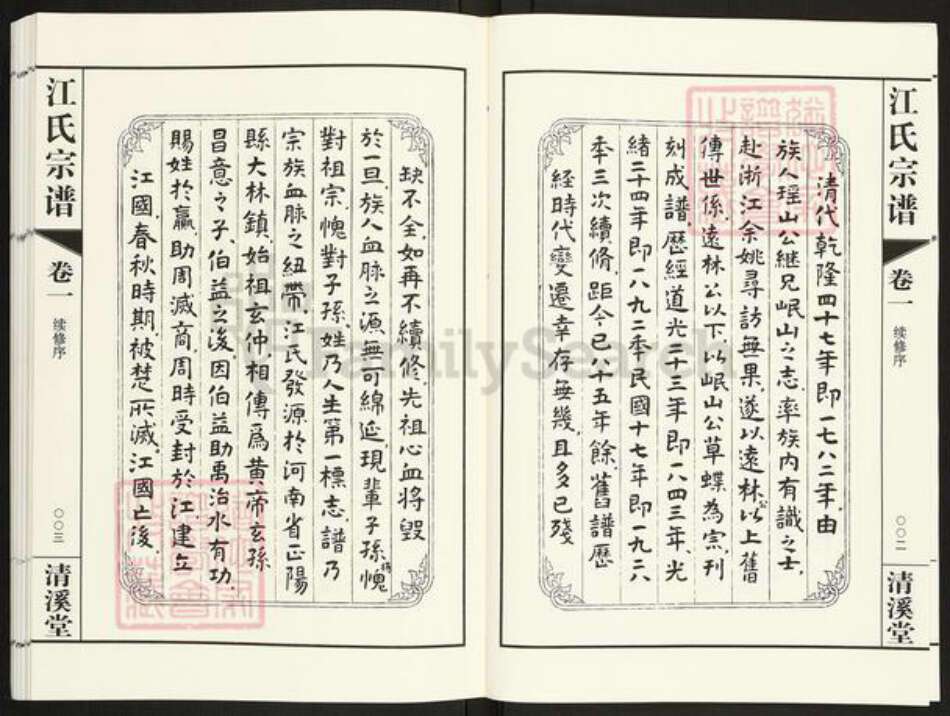 江氏宗谱
卷一
续修序
〇〇二
清溪堂
清代乾隆四十七年即一七八二年由
族人瑶山公继兄岷山之志率族内有識之士
赴浙江余姚尋訪無果遂以遠林公以上舊
傳世係遠林公以下以岷山公草蝶為宗刊
刻成譜歷經道光二十三年即一八四三年、光
緒二十四年即一八九二年民國十七年即一九二八
年三次續脩距今已八十五年餘舊譜歷
经時代變遷幸存無幾且多已殘
缺不全如再不續修先祖心血將毀
於一旦族人血脉之源無可綿延現輩子孫愧
對祖宗愧對子孫姓乃人生第一標志譜乃
宗族血脉之紐帶江氏發源於河南省正陽
縣大林鎮始祖玄仲相傳爲黄帝玄孫
昌意之子、伯益之後因伯益助禹治水有功
賜姓於嬴助周滅商周時受封於江建立
江國春秋時期被楚所滅江國亡後
江氏宗谱
卷一
续修序
〇〇三
清溪堂
FamilySearch